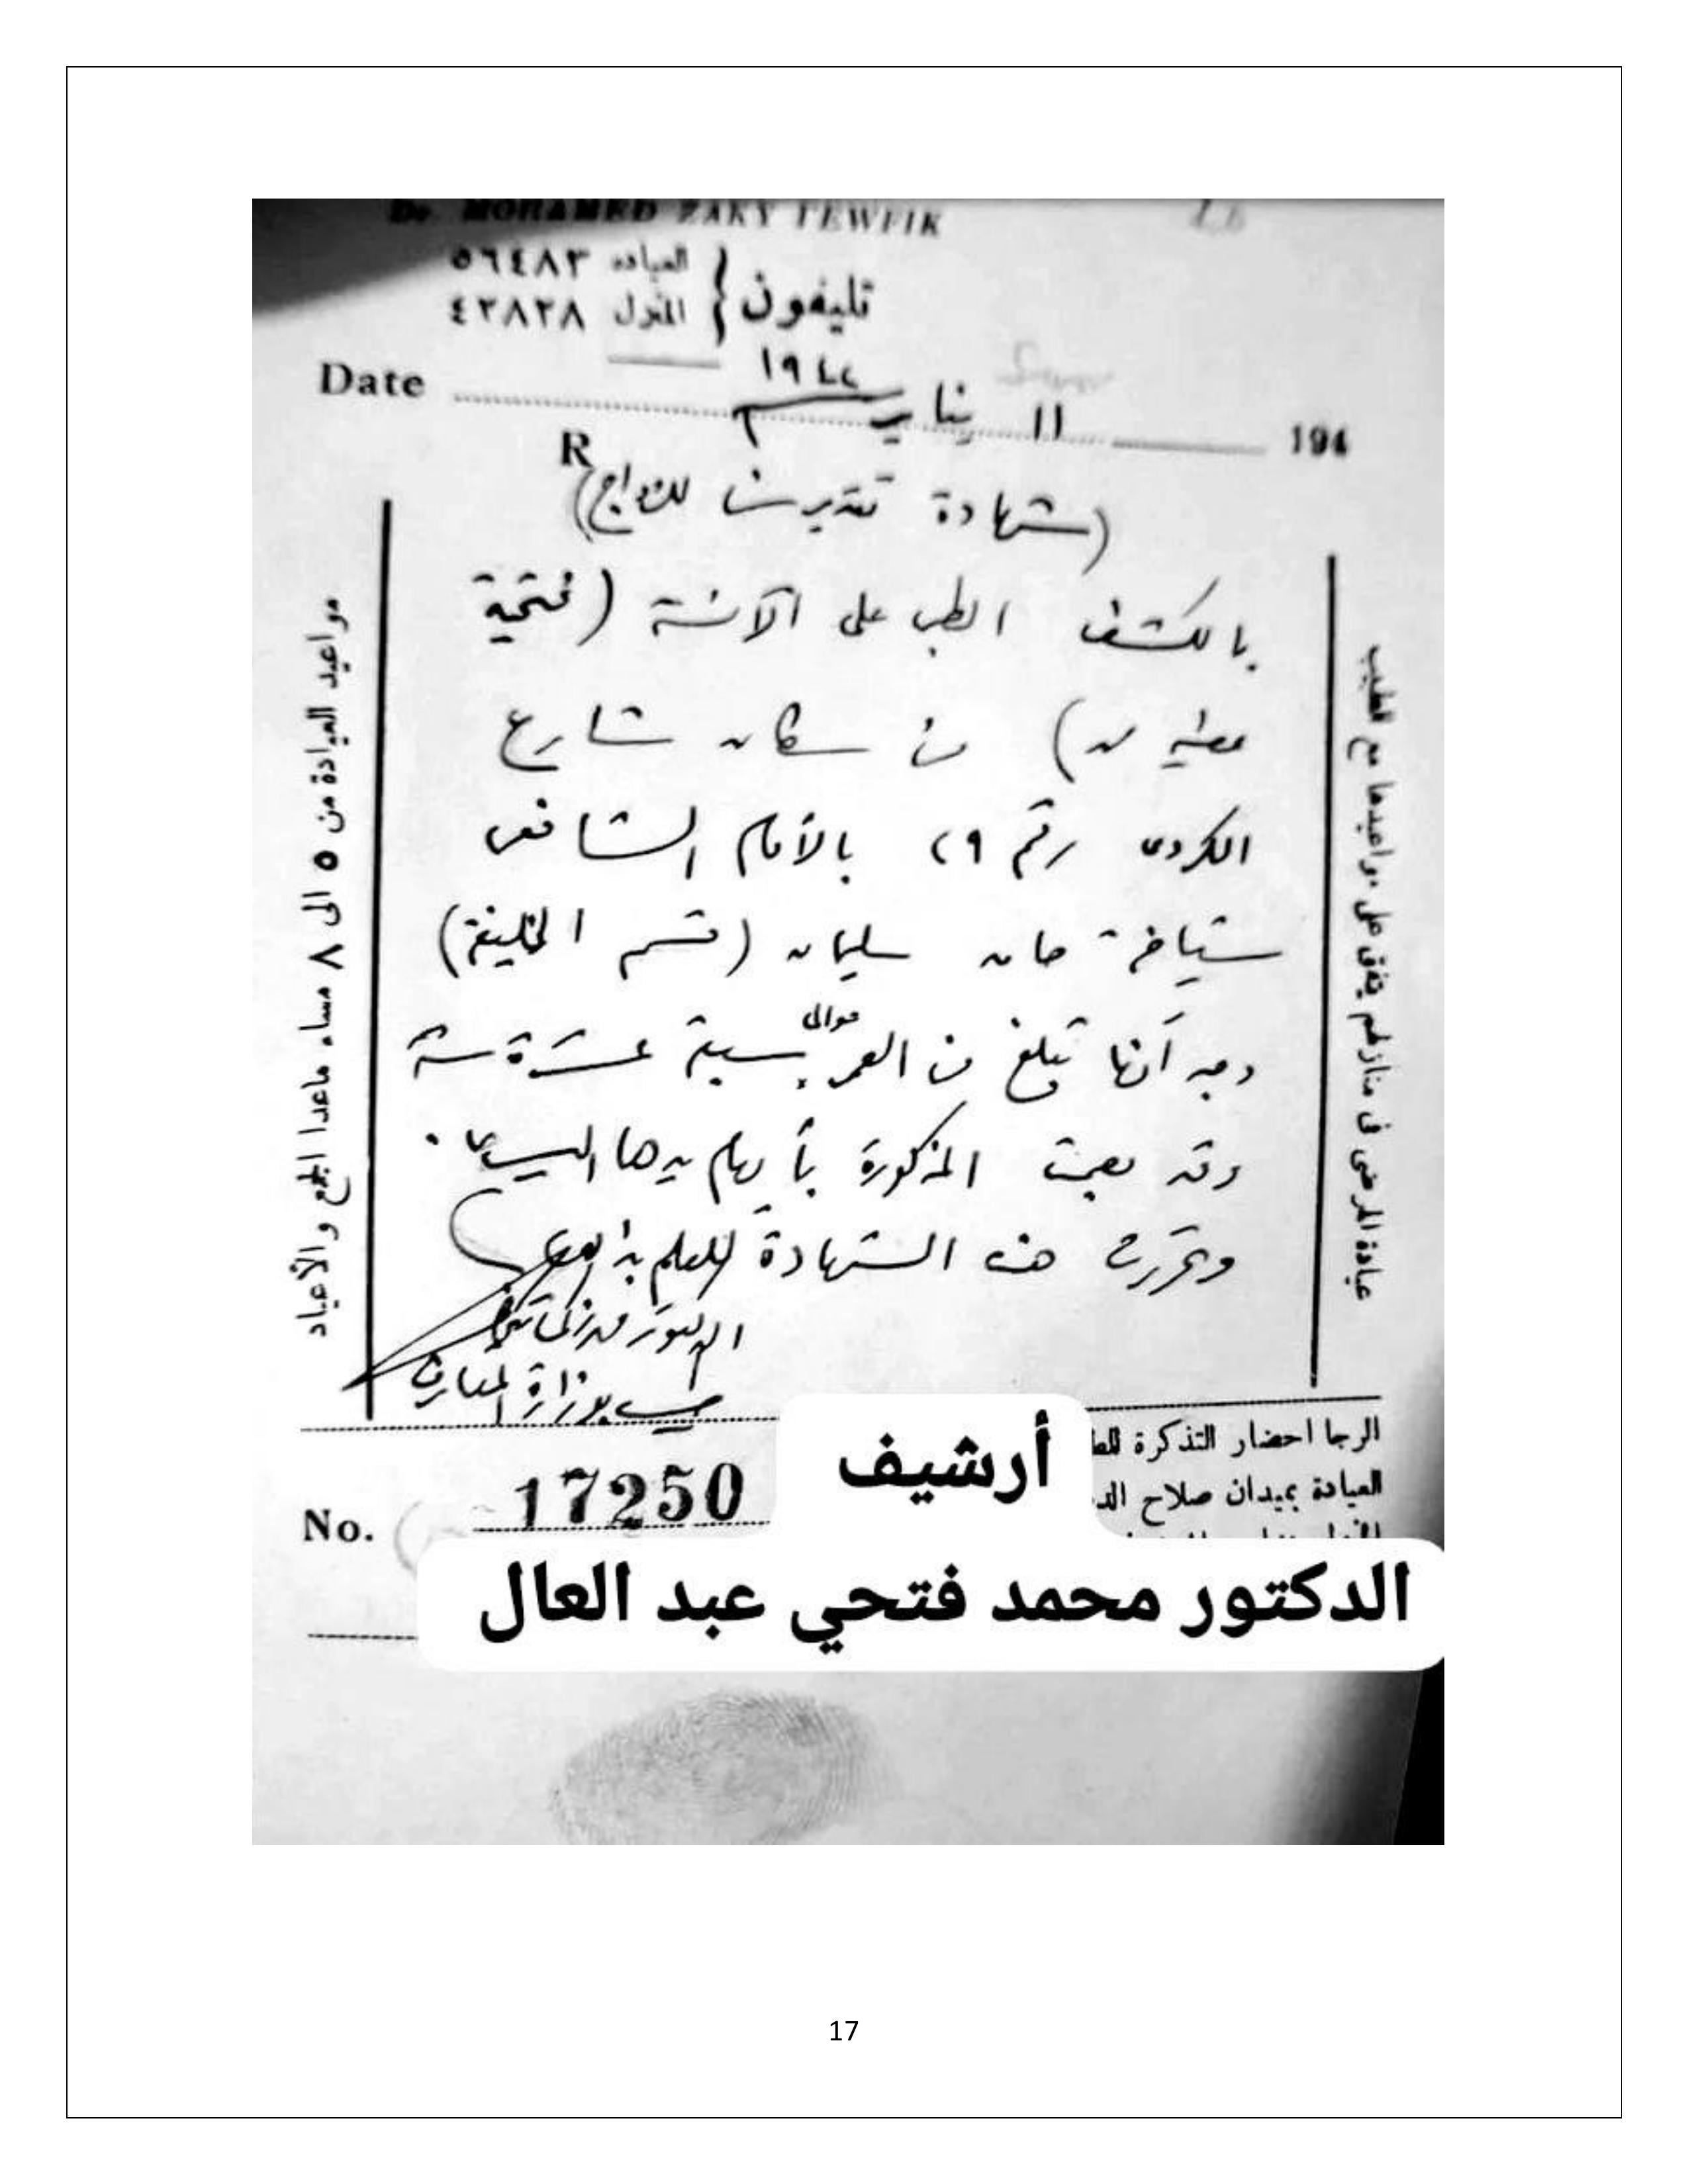 Dr. MOHAMED ZAKY TEWFIK
تليفون { العيادة ٥٦٤٨٣
المنزل ٤٢٨٢٨
Date ١١ يناير ١٩٤٤ 194
R
(شهادة تقدير سن للزواج)
بالكشف الطبى على الآنسة (فتحية
عطيه) من سكان شارع
الكردى رقم ٢٩ بالأمام الشافعى
سليمان (قسم الخليفة)
وجد أنها تبلغ من العمر حوالى سبعة عشرة سنة
وقد بصمت المذكورة بأبهام يدها اليسرى.
وتحررت هذه الشهادة للعلم بها
الدكتور محمد زكى توفيق
طبيب بوزارة المعارف
مواعيد العيادة من ٥ الى ٨ مساء ماعدا الجمع والأعياد
عيادة المرضى فى منازلهم يتفق على مواعيدها مع الطبيب
الرجا احضار التذكرة
العيادة بميدان صلاح
No. 17250
أرشيف
الدكتور محمد فتحي عبد العال
17